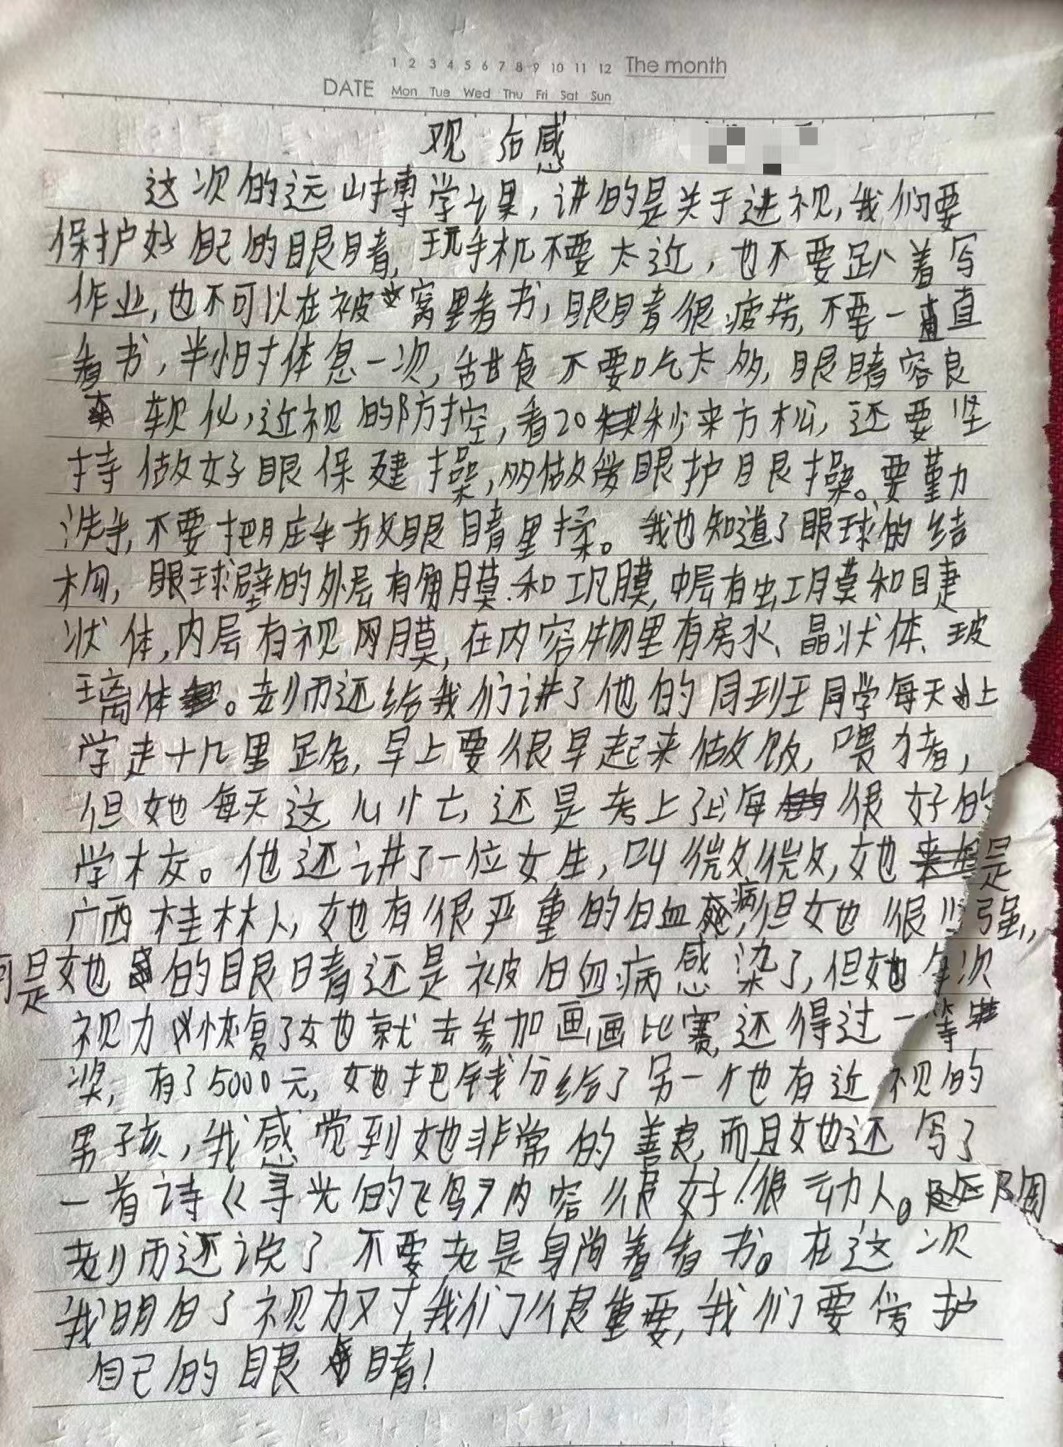 1 2 3 4 5 6 7 8 9 10 11 12 The month
DATE Mon Tue Wed Thu Fri Sat Sun
观后感
这次的远山博学课,讲的是关于进视,我们要
保护好自己的眼睛,玩手机不要太近,也不要趴着写
作业,也不可以在被窝里看书,眼睛很疲劳,不要一直
看书,半小时体息一次,甜食不要吃太多,眼睛容良
软化,近视的防控,看20秒来方松,还要坚
持做好眼保建操,多做爱眼护眼操。要勤
洗手,不要把脏手放眼睛里揉。我也知道了眼球的结
构,眼球壁的外层有角膜和巩膜,中层有虫工膜和睫
状体,内层有视网膜,在内容物里有房水、晶状体、玻
璃体。老师还给我们讲了他的同班同学每天上
学走十几里路,早上要很早起来做饭,喂猪,
但她每天这么忙,还是考上了上海很好的
学校。他还讲了一位女生,叫微微,她是
广西桂林人,她有很严重的白血病,但她很坚强,
可是她的眼睛还是被白血病感染了,但她每次
视力恢复了她就去参加画画比赛,还得过一等
奖,有了5000元,她把钱分给了另一个也有近视的
男孩,我感觉到她非常的善良,而且她还写了
一首诗《寻光的飞鸟》内容很好!很动人。陶
老师还说了不要老是身尚着看书。在这次
我明白了视力对我们很重要,我们要爱护
自己的眼睛!